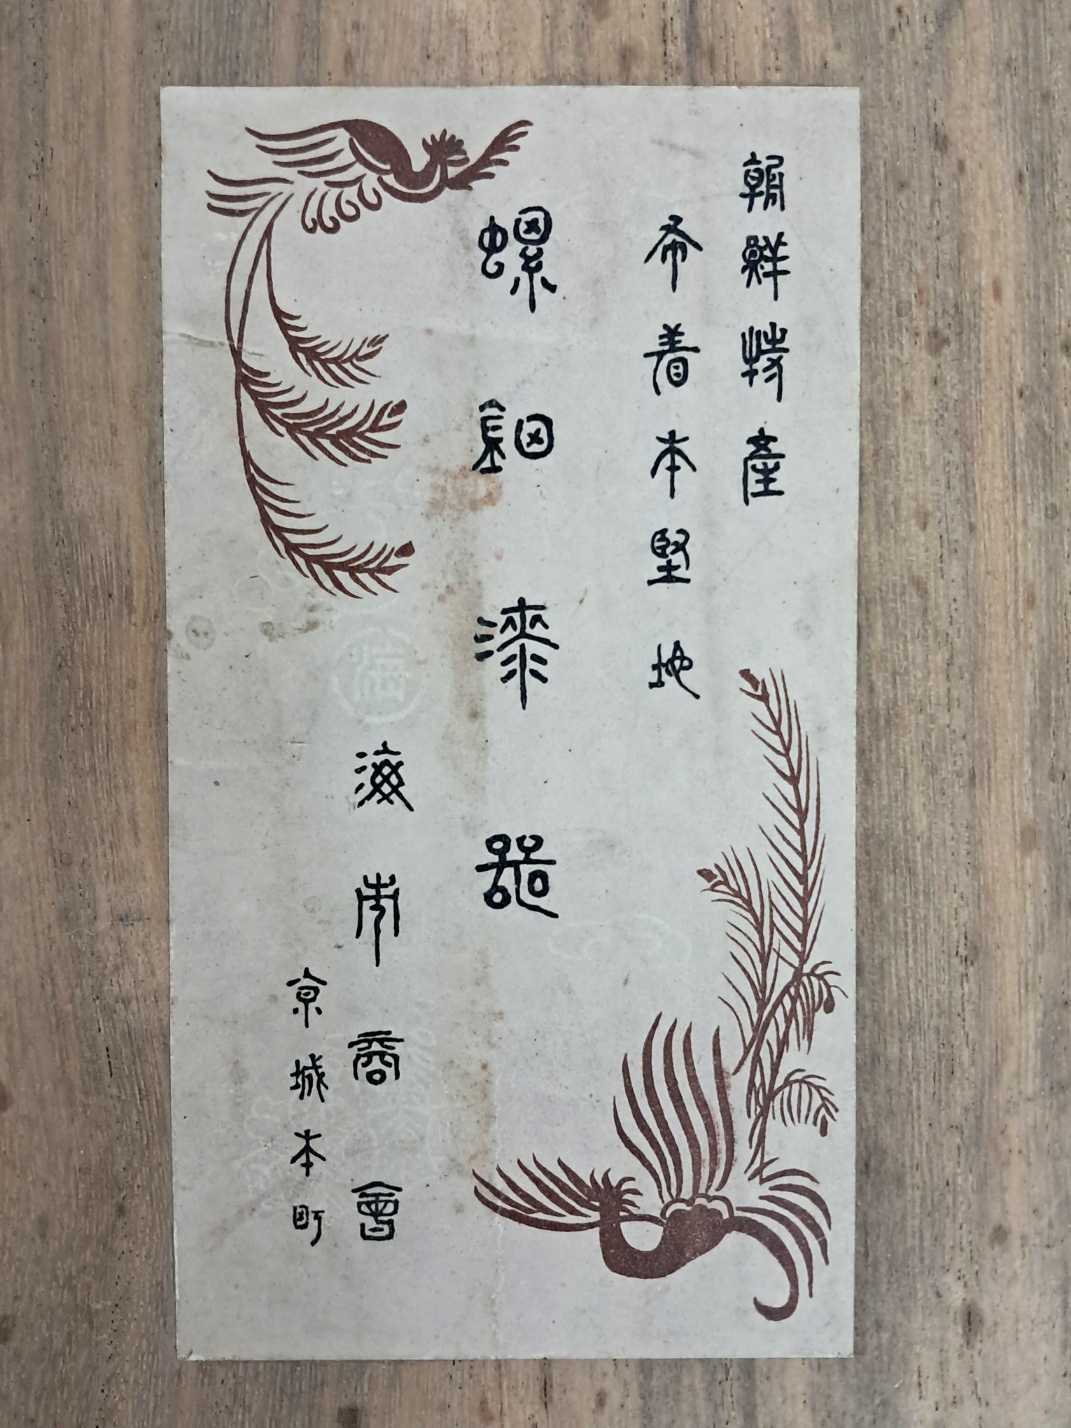 朝鮮特產
布着本堅地
螺鈿漆器
海
海市商會
京城本町